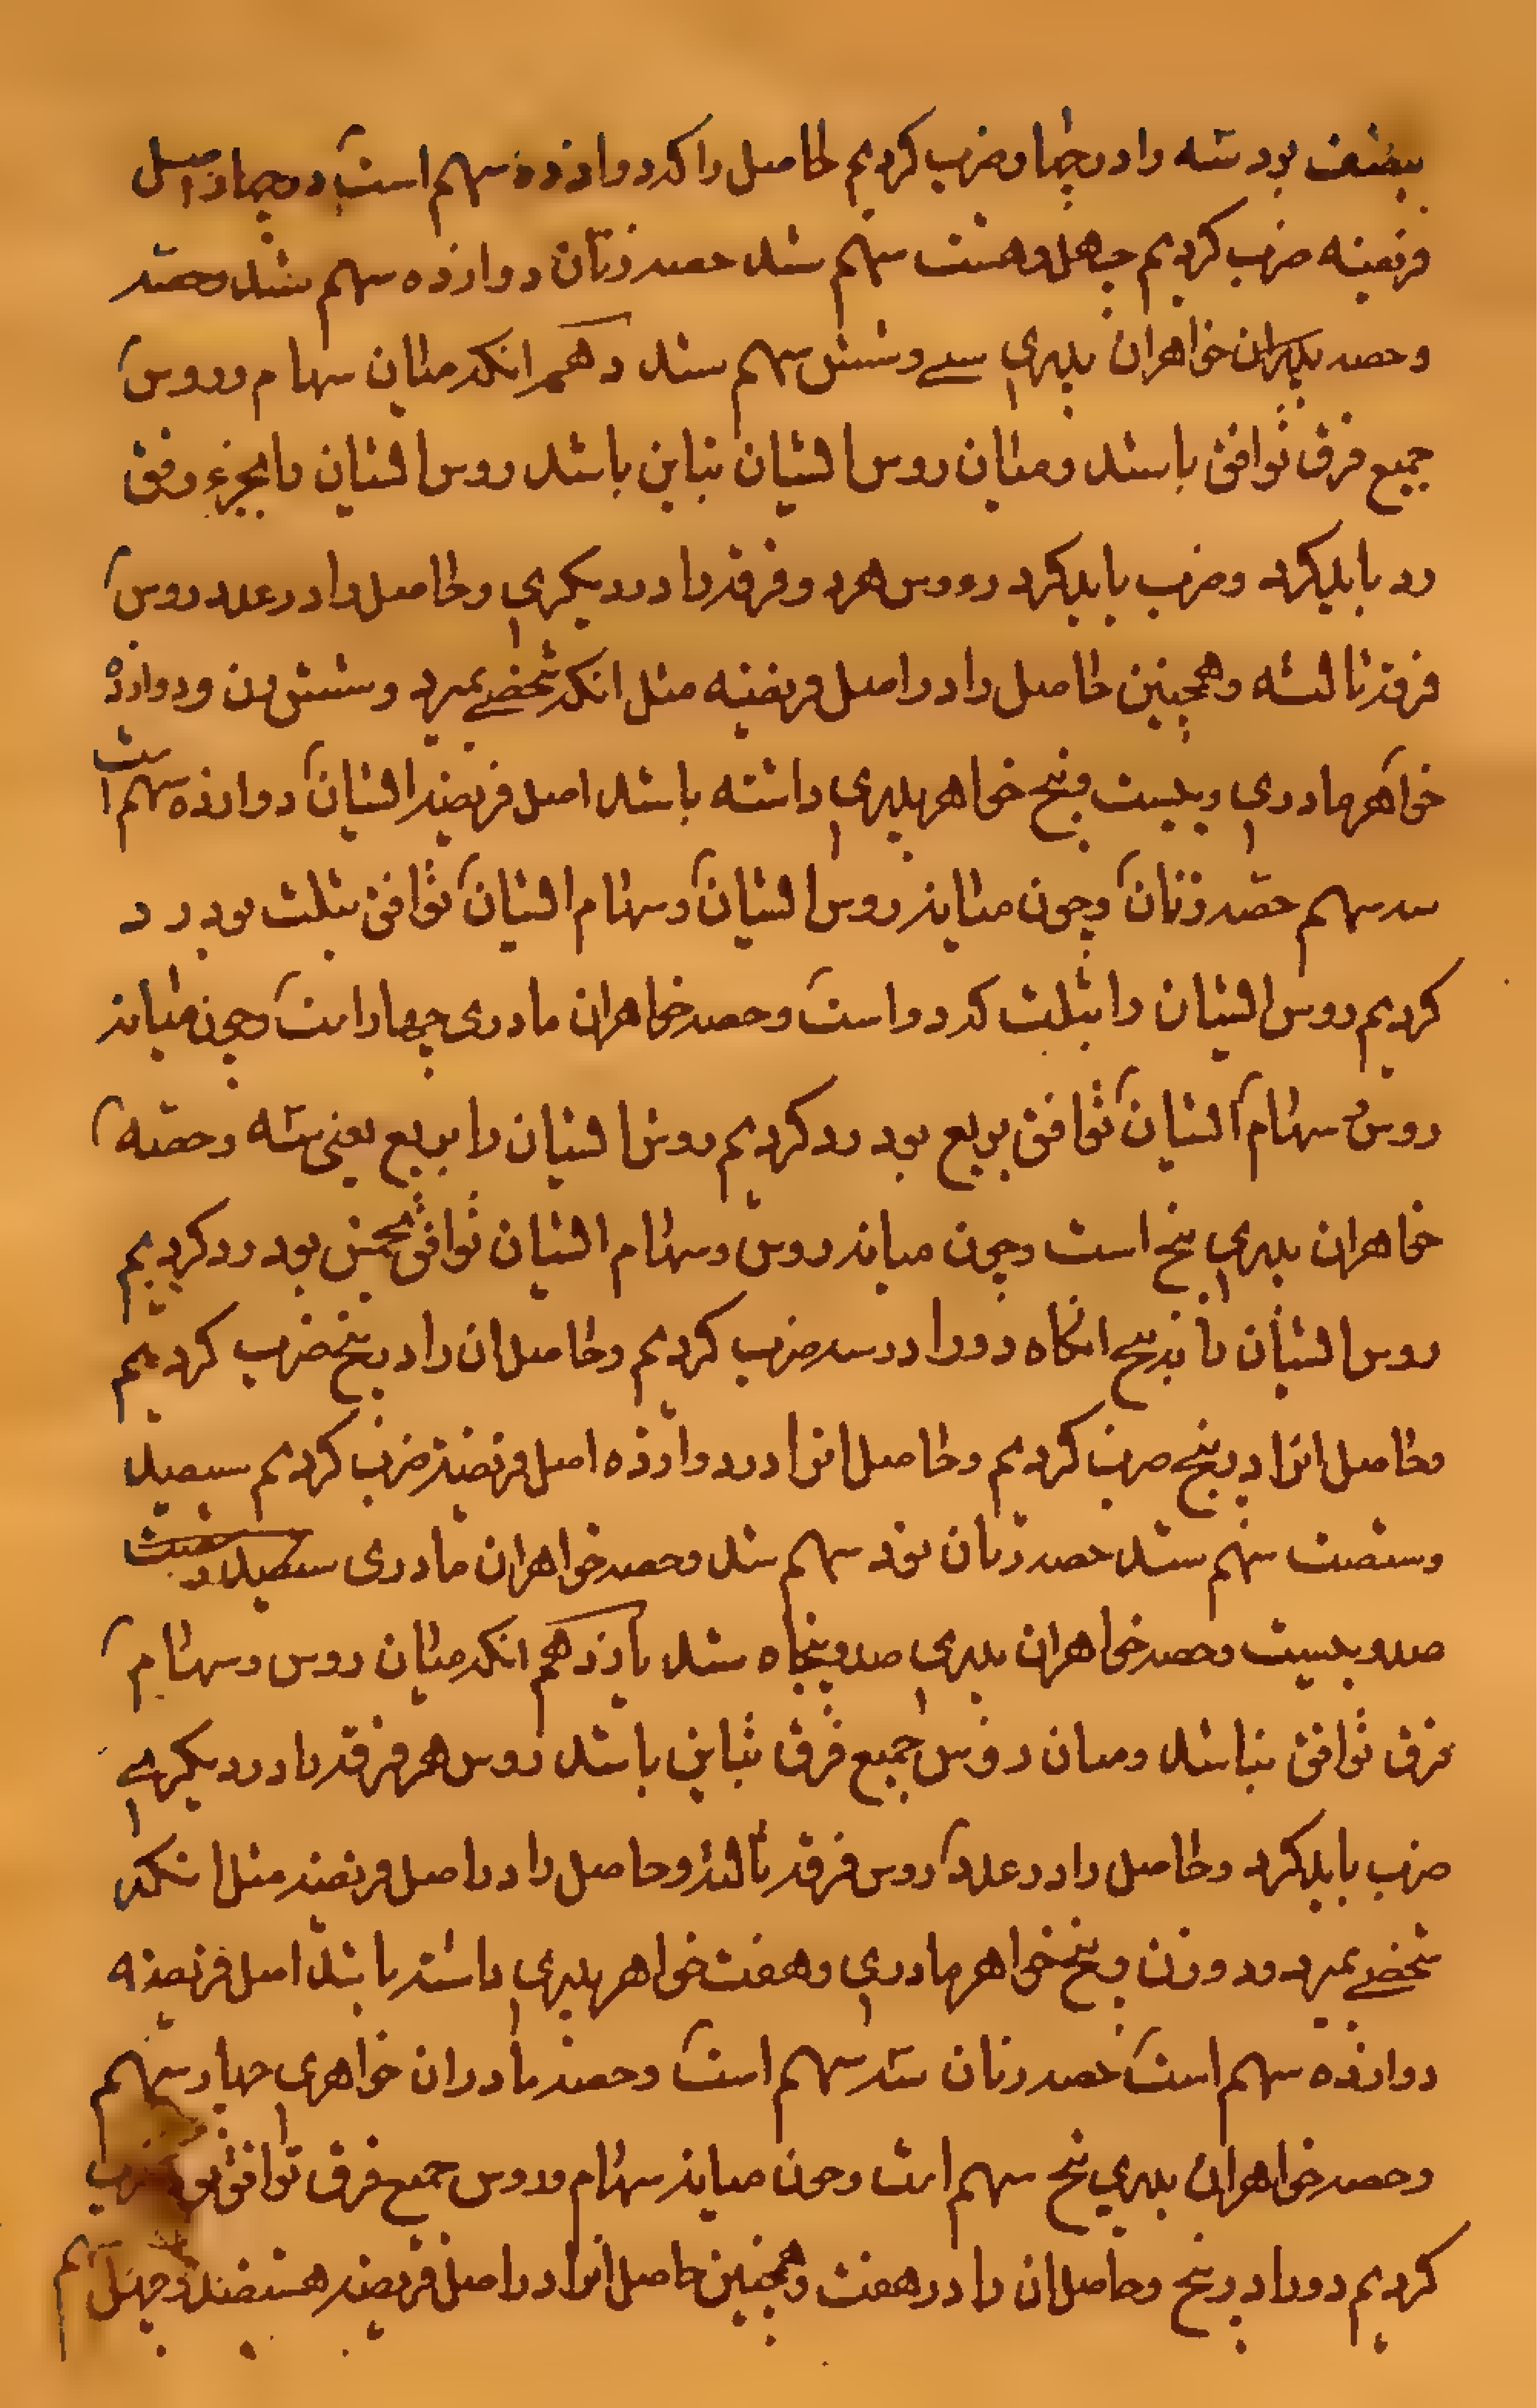 بنصف بود سه را در چهار ضرب کردیم حاصل را که دوازده سهم است در چهار اصل
فریضه ضرب کردیم چهل و هشت سهم شد حصه زنان دوازده سهم شد وحصه
وحصه پدران خواهران پدری سی وشش سهم شد دهم انکه میان سهام ورووس
جمیع فرق توافق باشد ومیان روس ایشان تباین باشد روس ایشان را بجزء وفق
رد باید کرد وضرب باید کرد رووس هر دو فرقه را در دیکری وحاصل را در عدد روس
فرقه ثالثه وهمچنین حاصل را در اصل فریضه مثل انکه شخصی بمیرد وشش زن ودوازده
خواهر مادری وبیست وپنج خواهر پدری داشته باشد اصل فریضه ایشان دوازده سهم است
سه سهم حصه زنان وچون میانه روس ایشان وسهام ایشان توافق بثلث بود رد
کردیم روس ایشان را بثلث که دو است وحصه خواهران مادری چهار است وچون میانه
روس سهام ایشان توافق بربع بود رد کردیم روس ایشان را بربع یعنی سه وحصه
خواهران پدری پنج است وچون میانه روس وسهام ایشان توافق بخمس بود رد کردیم
روس ایشان را به پنج انکاه دو را در سه ضرب کردیم وحاصل ان را در پنج ضرب کردیم
وحاصل انرا در پنج ضرب کردیم وحاصل انرا در دوازده اصل فریضه ضرب کردیم سیصد
وشصت سهم شد حصه زنان نود سهم شد وحصه خواهران مادری سیصد وشصت
صد وبیست وحصه خواهران پدری صد وپنجاه شد یازدهم انکه میان روس وسهام
فرق توافق نباشد ومیان روس جمیع فرق تباین باشد روس هر فرقه را در دیکری
ضرب باید کرد وحاصل را در عدد روس فرقه ثالثه وحاصل را در اصل فریضه مثل انکه
شخصی بمیرد ودو زن وپنج خواهر مادری وهفت خواهر پدری داشته باشد اصل فریضه
دوازده سهم است حصه زنان سه سهم است وحصه مادران خواهری چهار سهم
وحصه خواهران پدری پنج سهم است وچون میانه سهام وروس جمیع فرق توافق بود ضرب
کردیم دو را در پنج وحاصل ان را در هفت وهمچنین حاصل انرا در اصل فریضه هشتصد وچهل سهم